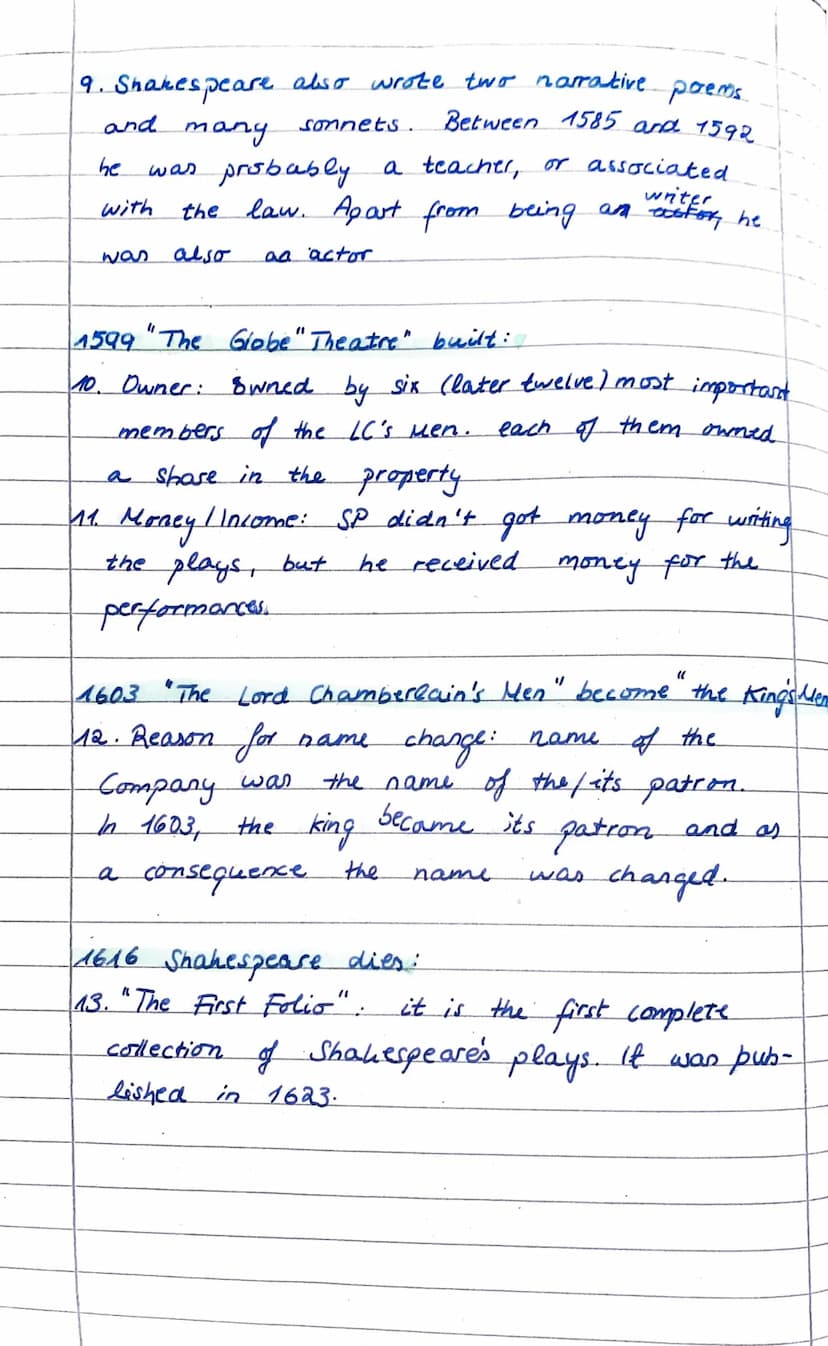 9. Shakespeare also wrote two narrative poems
and many sonnets. Between 1585 and 1592
he was probably a teacher, or associated
with the law. Apart from being an writer actor, he
was also an actor
1599 "The Globe" Theatre" built:
10. Owner: owned by six (later twelve) most important
members of the LC's Men. each of them owned
a share in the property
11. Money/Income: SP didn't got money for writing
the plays, but he received money for the
performances.
1603 "The Lord Chamberlain's Men" become "the King's Men
12. Reason for name change: name of the
Company was the name of the/its patron.
In 1603, the king became its patron and as
a consequence the name was changed.
1616 Shakespeare dies:
13. "The First Folio": it is the first complete
collection of Shakespeare's plays. It was pub-
lished in 1623.